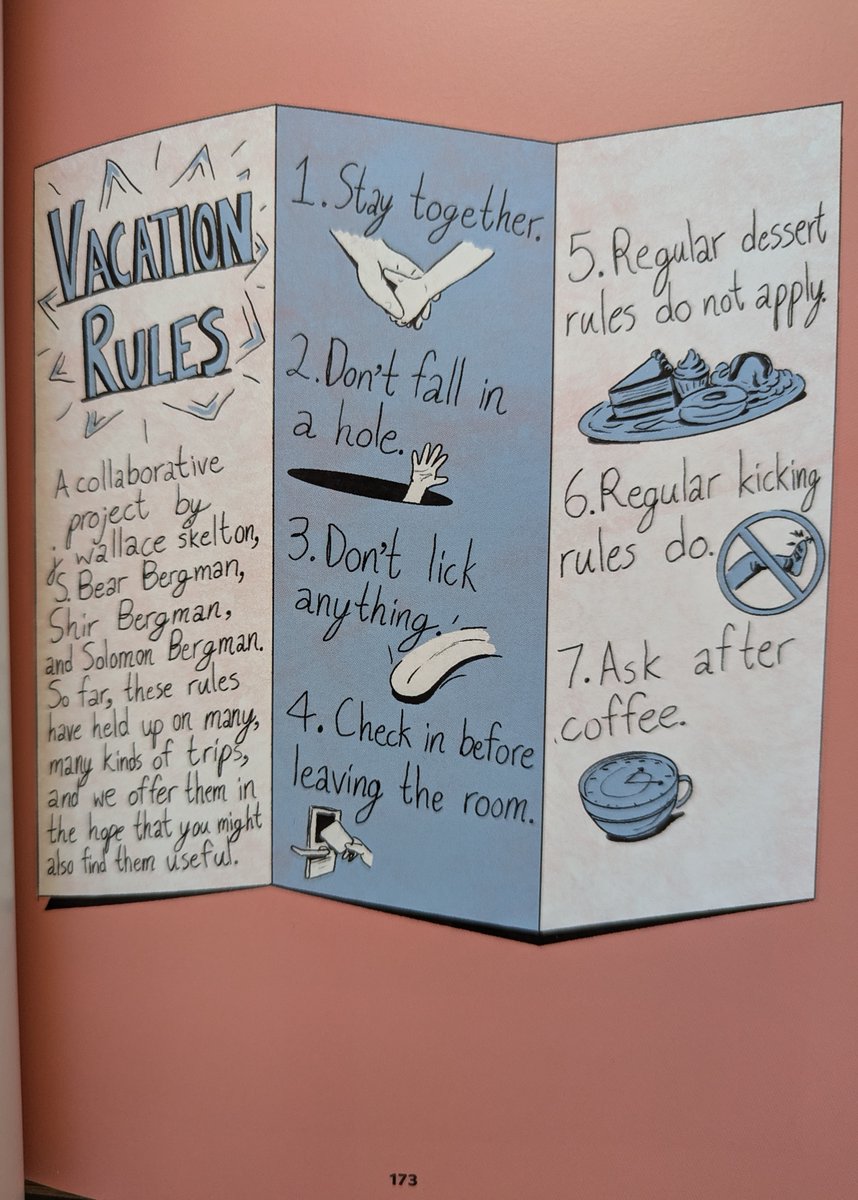 VACATION
RULES
A collaborative
project by
j wallace skelton,
S. Bear Bergman,
Shir Bergman,
and Solomon Bergman.
So far, these rules
have held up on many,
many kinds of trips,
and we offer them in
the hope that you might
also find them useful.
1. Stay together.
2. Don't fall in
a hole.
3. Don't lick
anything.
4. Check in before
leaving the room.
5. Regular dessert
rules do not apply.
6. Regular kicking
rules do.
7. Ask after
coffee.
173